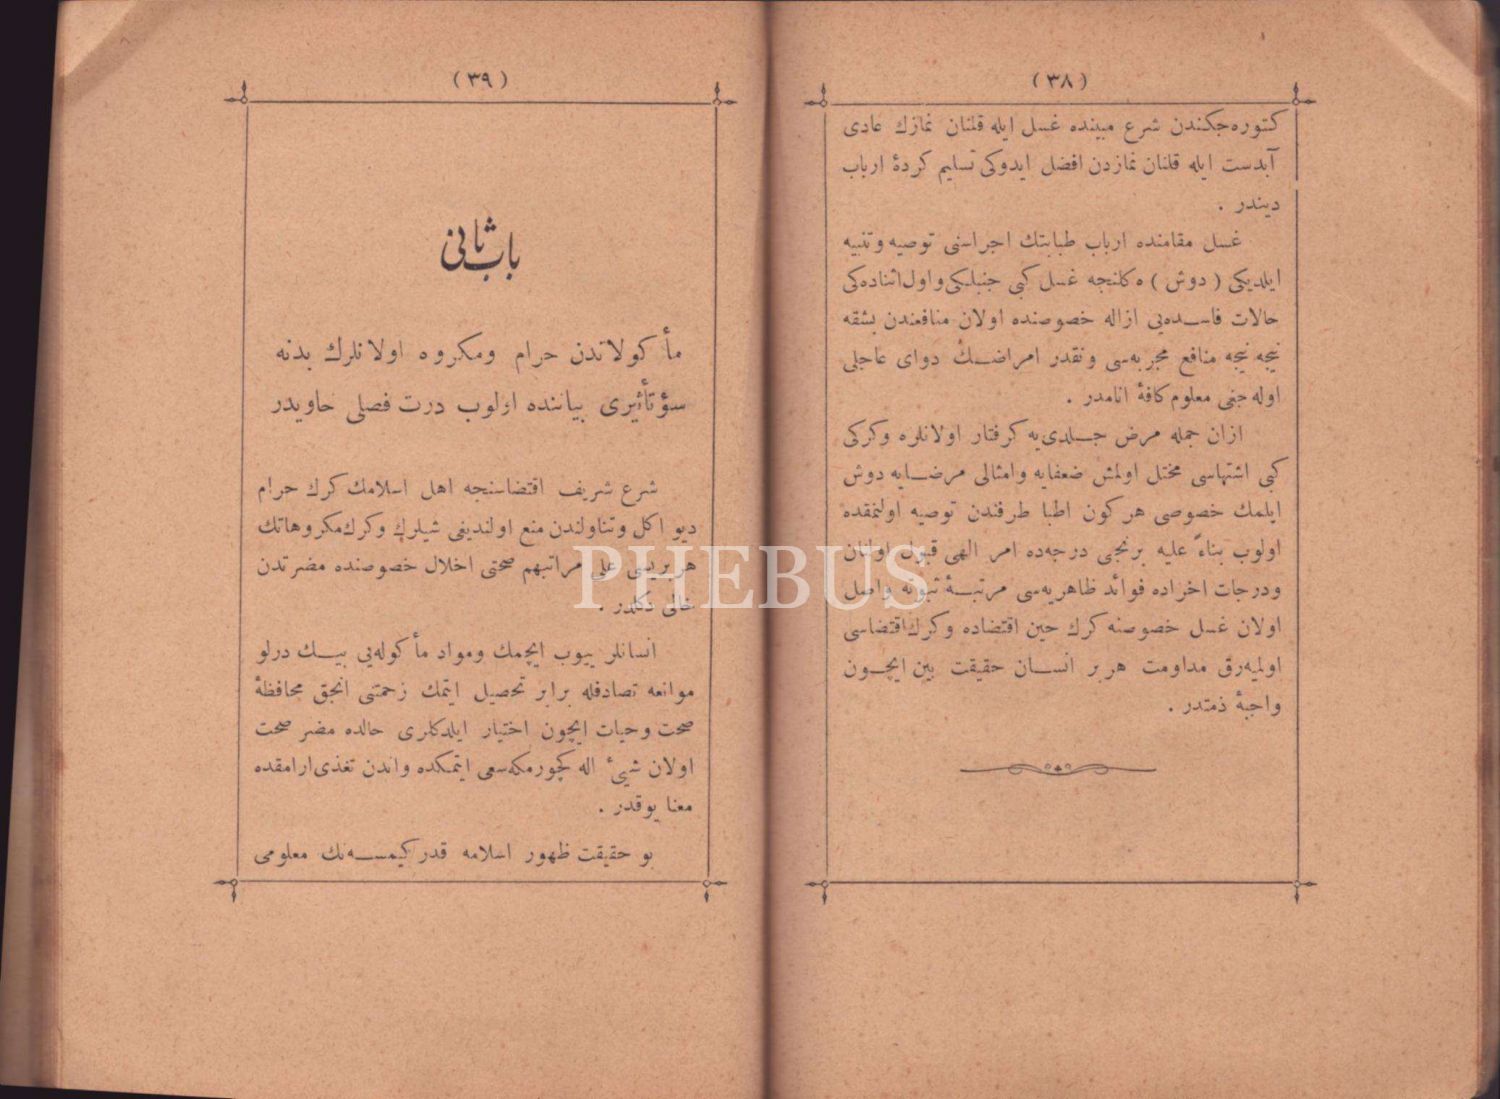 ( ٣٨ )
كتوره‌جكندن شرع مبينده غسل ايله قلنان نمازك عادى
آبدست ايله قلنان نمازدن افضل ايدوكى تسليم كردۀ ارباب
ديندر .
غسل مقامنده ارباب طبابتك اجراسنى توصيه وتنبيه
ايلديكى ( دوش ) ه كلنجه غسل كبى جنبلكى واول اثناده‌كى
حالات فاسده‌يى ازاله خصوصنده اولان منافعندن بشقه
نيجه نيجه منافع مجربه‌سى ونقدر امراضك دواى عاجلى
اوله‌جغى معلوم كافۀ انامدر .
ازان جمله مرض جلدى‌يه كرفتار اولانلره وكركى
كبى اشتهاسى مختل اولمش ضعفايه وامثالى مرضايه دوش
ايلمك خصوصى هركون اطبا طرفندن توصيه اولنمقده
اولوب بناءً عليه برنجى درجه‌ده امر الهى قبول اولنان
ودرجات اخراده فوائد ظاهريه‌سى مرتبۀ ثبوته واصل
اولان غسل خصوصنه كرك حين اقتضاده وكرك اقتضاسى
اولميه‌رق مداومت هربر انسان حقيقت بين ايچون
واجبۀ ذمتدر .
( ٣٩ )
باب ثانى
مأكولاتدن حرام ومكروه اولانلرك بدنه
سؤ تأثيرى بياننده اولوب درت فصلى حاويدر
شرع شريف اقتضاسنجه اهل اسلامك كرك حرام
ديو اكل وتناولندن منع اولنديغى شيلرك وكرك مكروهاتك
هربريسى على مراتبهم صحتى اخلال خصوصنده مضرتدن
خالى دكلدر .
انسانلر ييوب ايچمك ومواد مأكوله‌يى بيك درلو
موانعه تصادفله برابر تحصيل ايتمك زحمتنى انجق محافظۀ
صحت وحيات ايچون اختيار ايلدكلرى حالده مضر صحت
اولان شيئ اله كچورمكه سعى ايتمكده واندن تغذى ارامقده
معنا يوقدر .
بو حقيقت ظهور اسلامه قدر كيمسه‌نك معلومى
PHEBUS